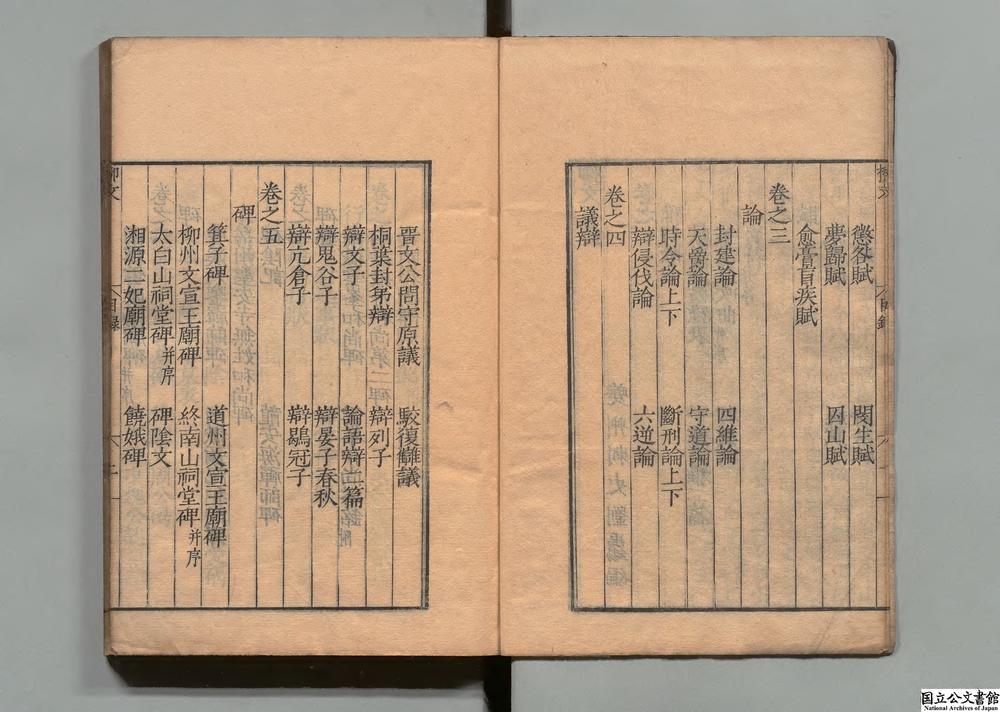 懲咎賦 閔生賦
夢歸賦 囚山賦
愈膏肓疾賦
卷之三
論
封建論 四維論
天爵論 守道論
時令論上下 斷刑論上下
辯侵伐論 六逆論
卷之四
議辯
晋文公問守原議 駮復讎議
桐葉封弟辯 辯列子
辯文子 論語辯二篇
辯鬼谷子 辯晏子春秋
辯亢倉子 辯鶡冠子
卷之五
碑
箕子碑 道州文宣王廟碑
柳州文宣王廟碑 終南山祠堂碑并序
太白山祠堂碑并序 碑陰文
湘源二妃廟碑 饒娥碑
柳文 目錄 二
国立公文書館
National Archives of Japan